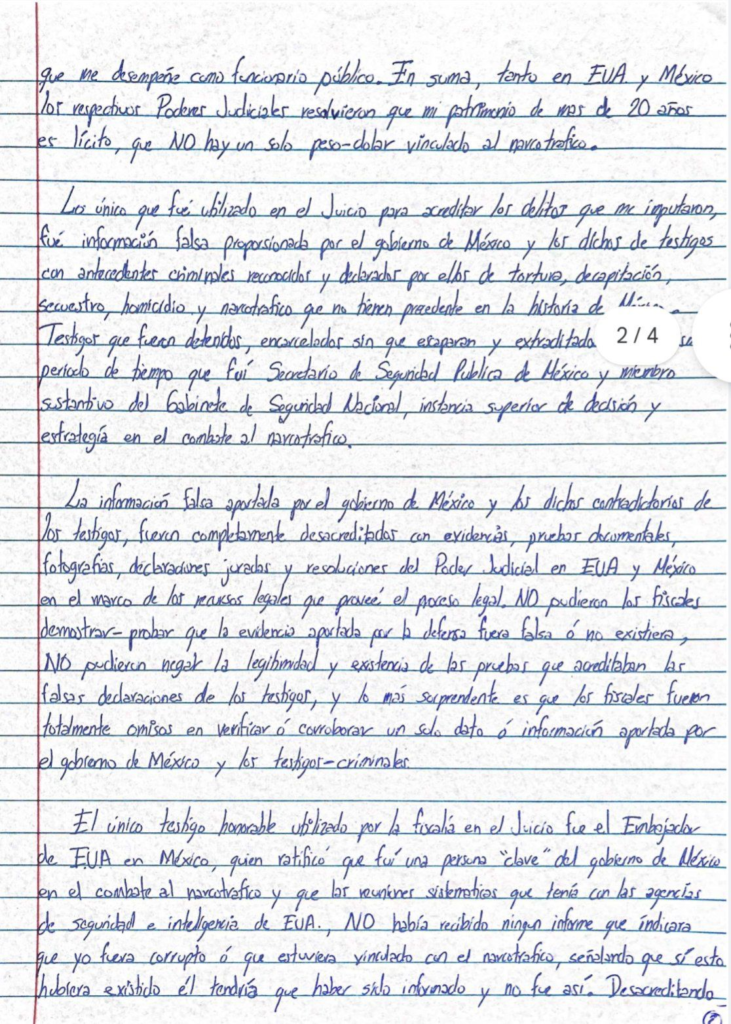 que me desempeñe como funcionario público. En suma, tanto en EUA y México
los respectivos Poderes Judiciales resolvieron que mi patrimonio de mas de 20 años
es lícito, que NO hay un solo peso-dolar vinculado al narcotrafico.
Los único que fué utilizado en el Juicio para acreditar los delitos que me imputaron,
fué información falsa proporsionada por el gobierno de México y los dichos de testigos
con antecedentes criminales reconocidos y declarados por ellos de tortura, decapitación,
secuestro, homicidio y narcotrafico que no tienen precedente en la historia de
Testigos que fueron detenidos, encarcelados sin que escaparan y extraditado
2/4
periodo de tiempo que fuí Secretario de Seguridad Publica de México y miembro
sustantivo del Gabinete de Seguridad Nacional, instancia superior de decisión y
estrategía en el combate al narcotrafico.
La información falsa aportada por el gobierno de México y los dichos contradictorios de
los testigos, fueron completamente desacreditados con evidencias, pruebas documentales,
fotografías, declaraciones juradas y resoluciones del Poder Judicial en EUA y México
en el marco de los recursos legales que proveé el proceso legal. NO pudieron los fiscales
demostrar-probar que la evidencia aportada por la defensa fuera falsa ó no existiera,
NO pudieron negar la legitimidad y existencia de las pruebas que acreditaban las
falsas declaraciones de los testigos, y lo más sorprendente es que los fiscales fueron
totalmente omisos en verificar ó corroborar un solo dato ó información aportada por
el gobierno de México y los testigos-criminales
El único testigo honorable utilizado por la fiscalía en el Juicio fue el Embajador
de EUA en México, quien ratificó que fuí una persona "clave" del gobierno de México
en el combate al narcotrafico y que las reuniones sistematicas que tenía con las agencias
de seguridad e inteligencia de EUA., NO había recibido ningun informe que indicara
que yo fuera corrupto ó que estuviera vinculado con el narcotrafico, señalando que sí esto
hubiera existido él tendría que haber sido informado y no fue así. Desacreditando